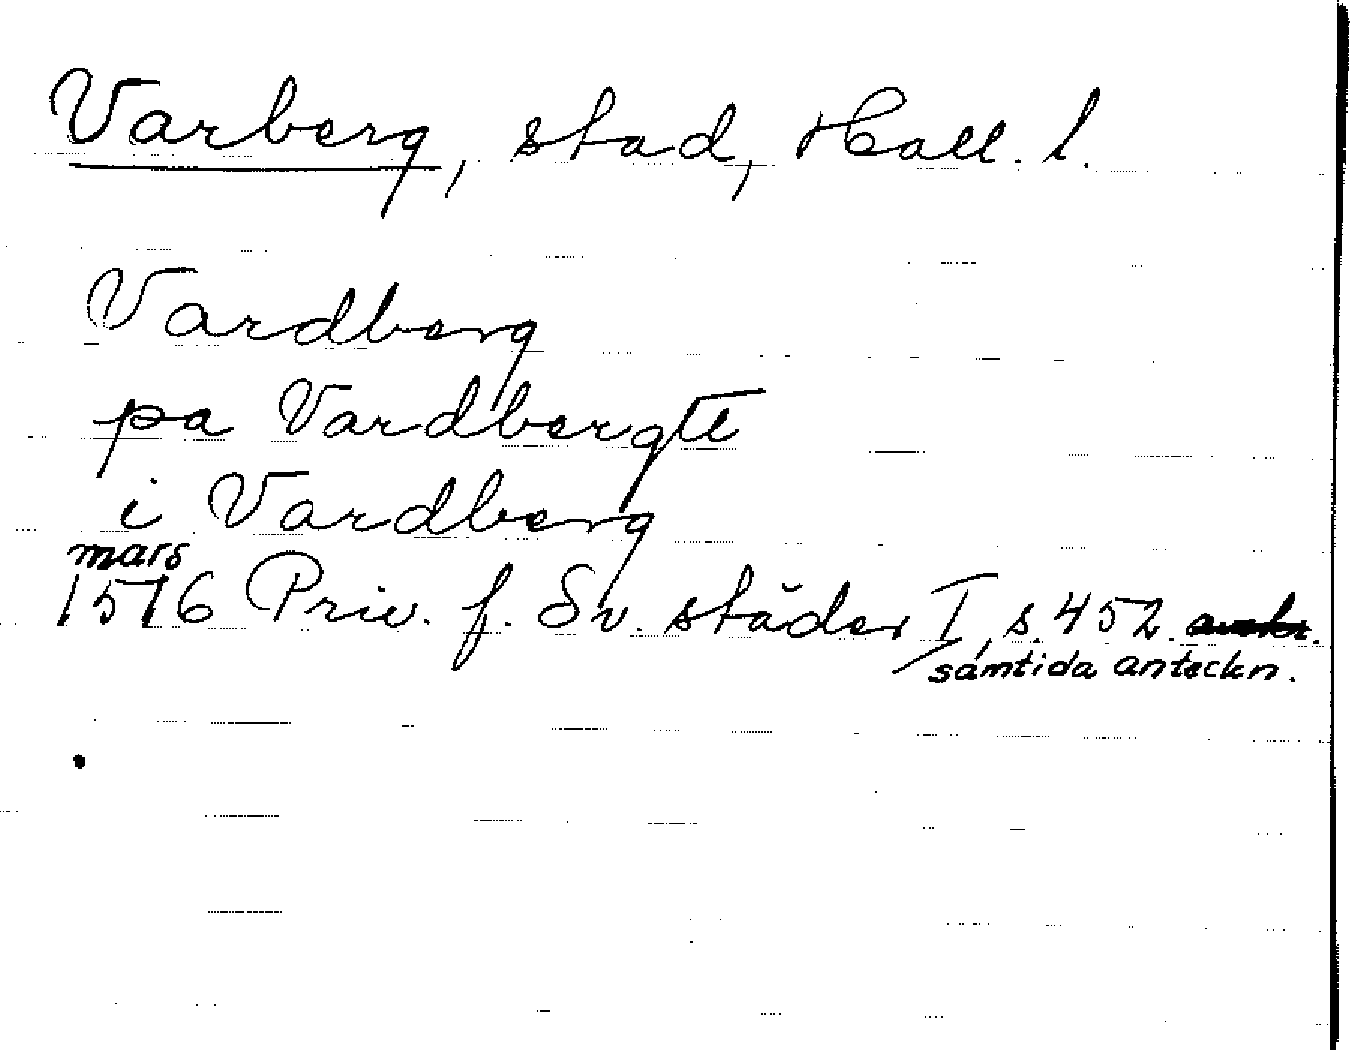 Varberg, stad, Hall. l.
Vardberg
pa Vardbergtt
i Vardberg
mars
1576 Priv. f. Sv. städer I, s. 452.
samtida anteckn.